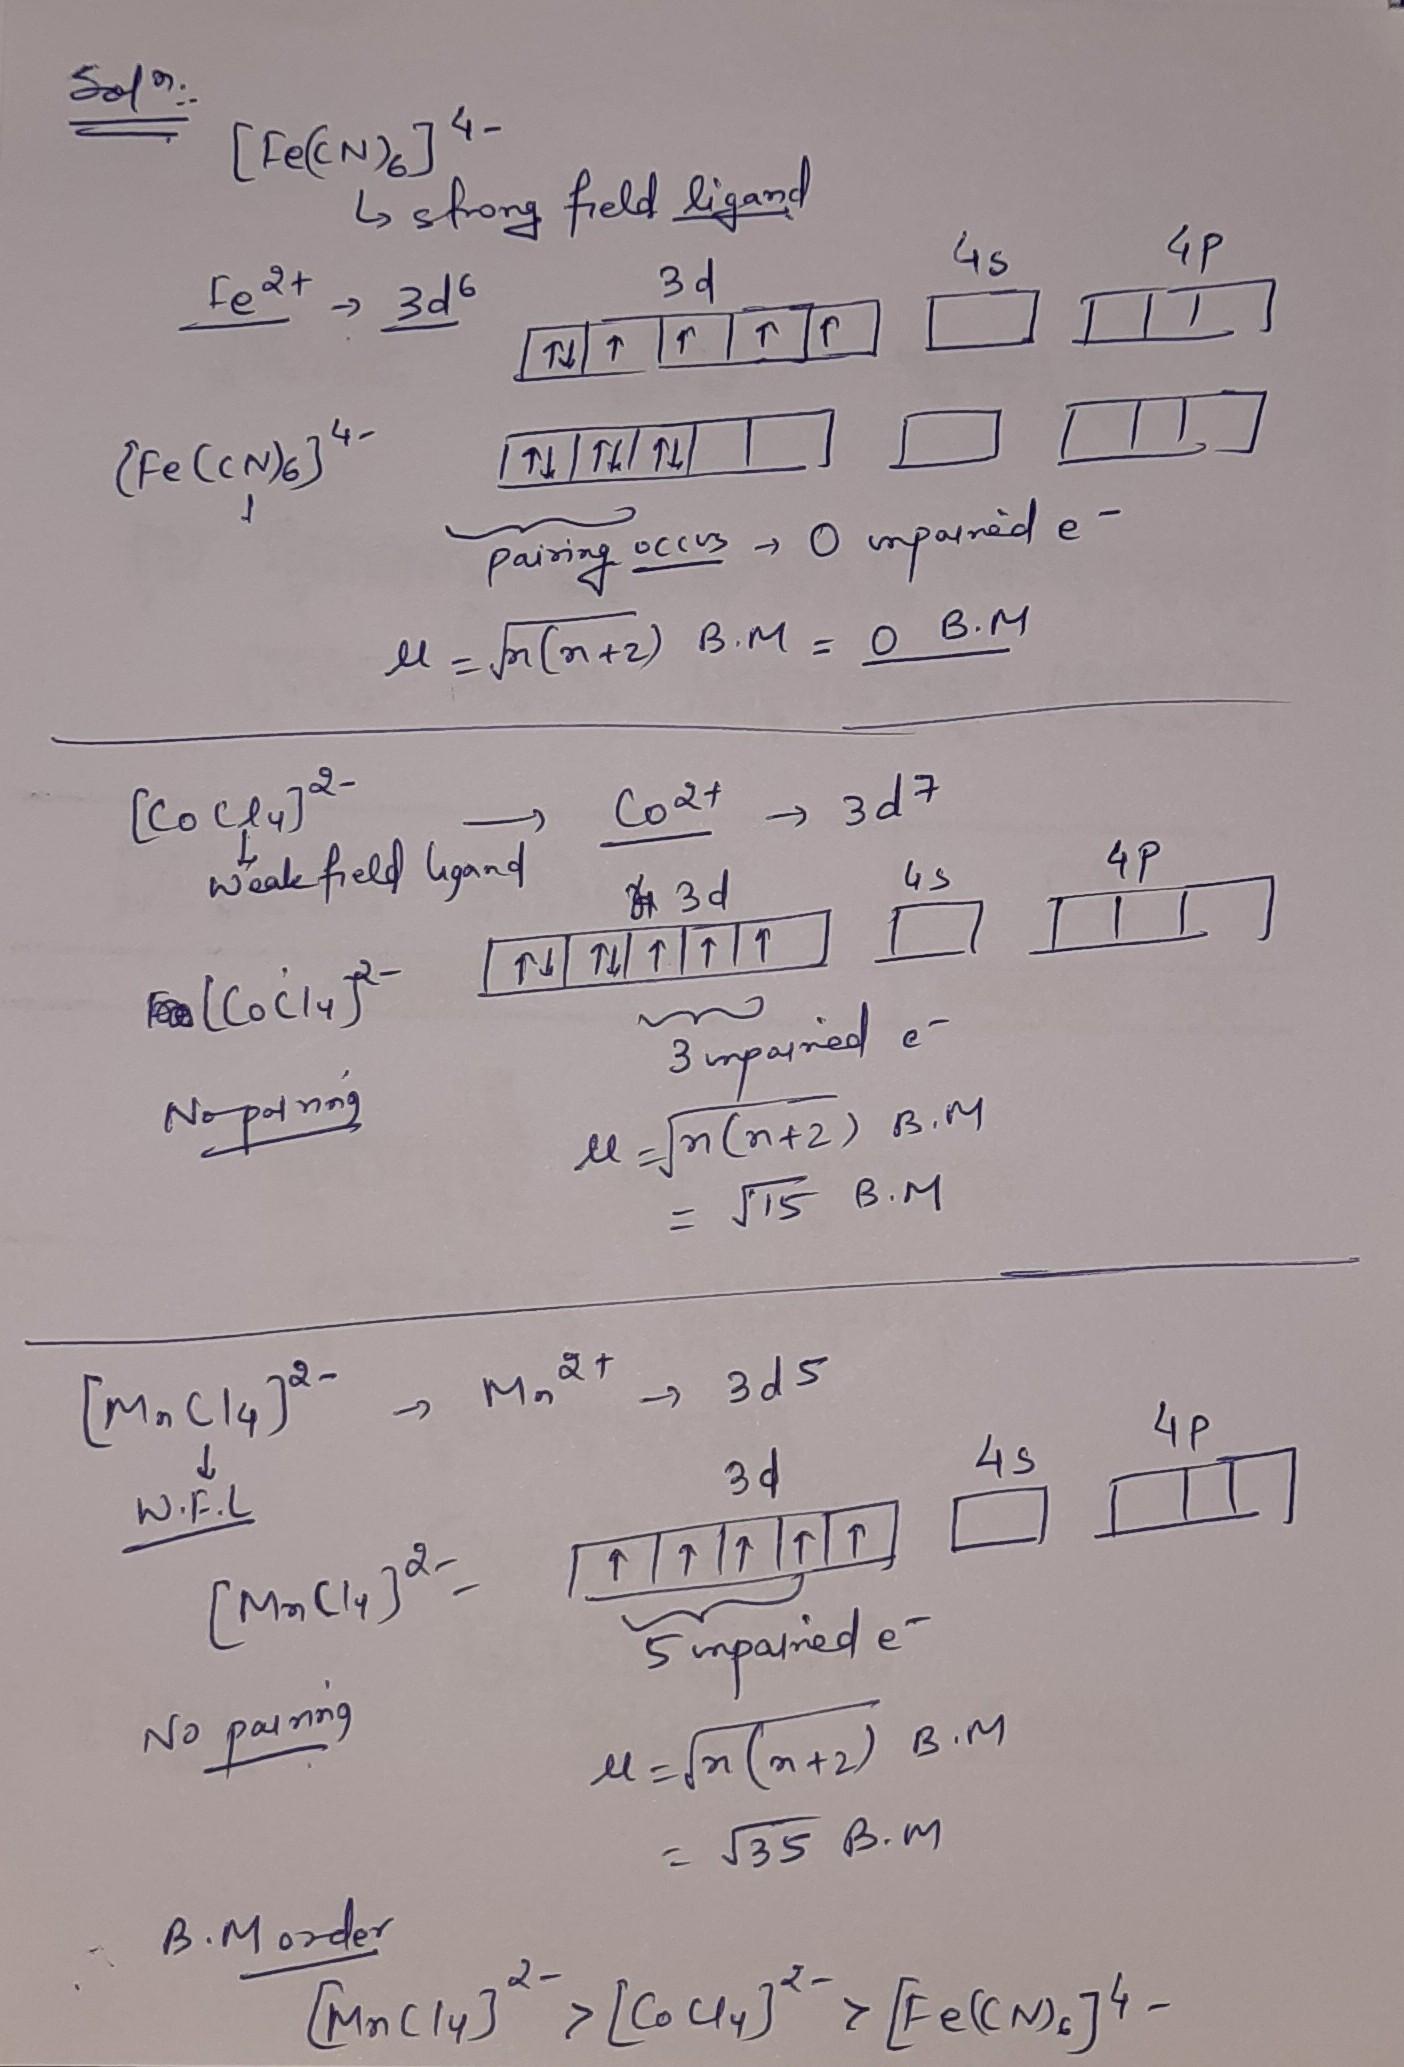 Soln:-
[Fe(CN)6]4-
↳ strong field ligand
Fe2+ → 3d6 3d 4s 4p
↑↓ ↑ ↑ ↑ ↑
[Fe(CN)6]4- ↑↓ ↑↓ ↑↓
pairing occurs → 0 unpaired e-
μ = √n(n+2) B.M = 0 B.M
[CoCl4]2- → Co2+ → 3d7
↓
Weak field ligand 3d 4s 4p
[CoCl4]2- ↑↓ ↑↓ ↑ ↑ ↑
3 unpaired e-
No pairing
μ = √n(n+2) B.M
= √15 B.M
[MnCl4]2- → Mn2+ → 3d5
↓
W.F.L 3d 4s 4p
[MnCl4]2- ↑ ↑ ↑ ↑ ↑
5 unpaired e-
No pairing
μ = √n(n+2) B.M
= √35 B.M
∴ B.M order
[MnCl4]2- > [CoCl4]2- > [Fe(CN)6]4-